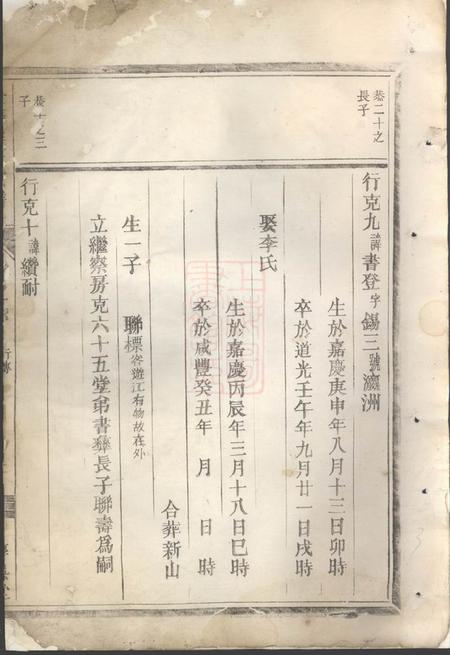 恭二十之
長子
行克九諱書登字錫三號瀛洲
生於嘉慶庚申年八月十三日卯時
卒於道光壬午年九月廿一日戌時
娶李氏
生於嘉慶丙辰年三月十八日巳時
卒於咸豐癸丑年 月 日 時
合葬新山
生一子 聯標客遊江右物故在外
立繼察房克六十五堂弟書彝長子聯壽爲嗣
子
行克十諱纘耐